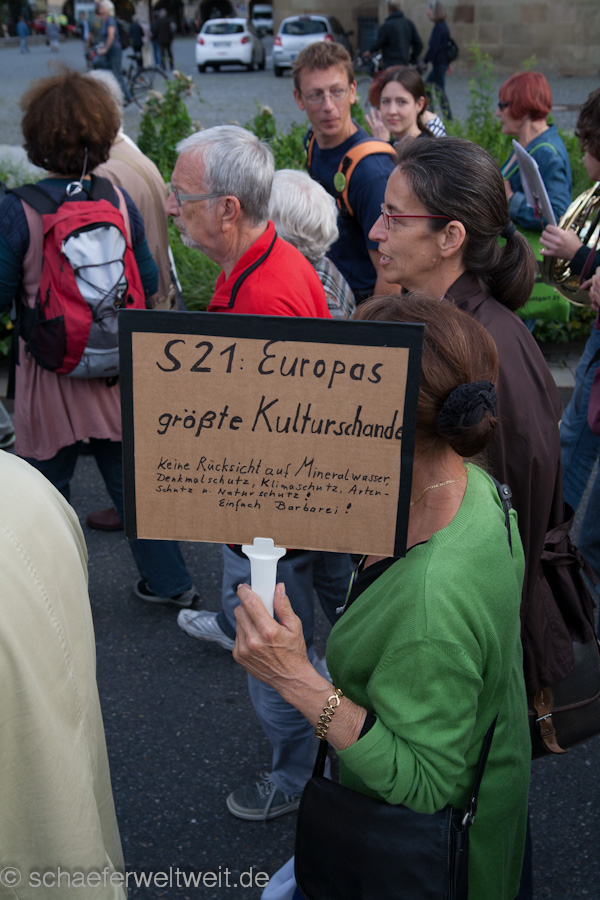 S21: Europas
größte Kulturschande
Keine Rücksicht auf Mineralwasser,
Denkmalschutz, Klimaschutz, Arten-
schutz u. Naturschutz!
Einfach Barbarei!
© schaeferweltweit.de